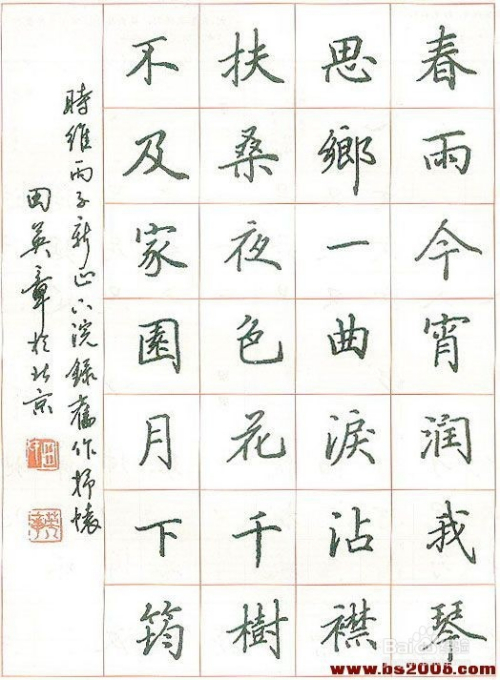 春雨今宵润我琴
思鄉一曲淚沾襟
扶桑夜色花千樹
不及家園月下筠
時維丙子新正下浣錄舊作抒懷
田英章於北京
Baidu经验
www.bs2005.com